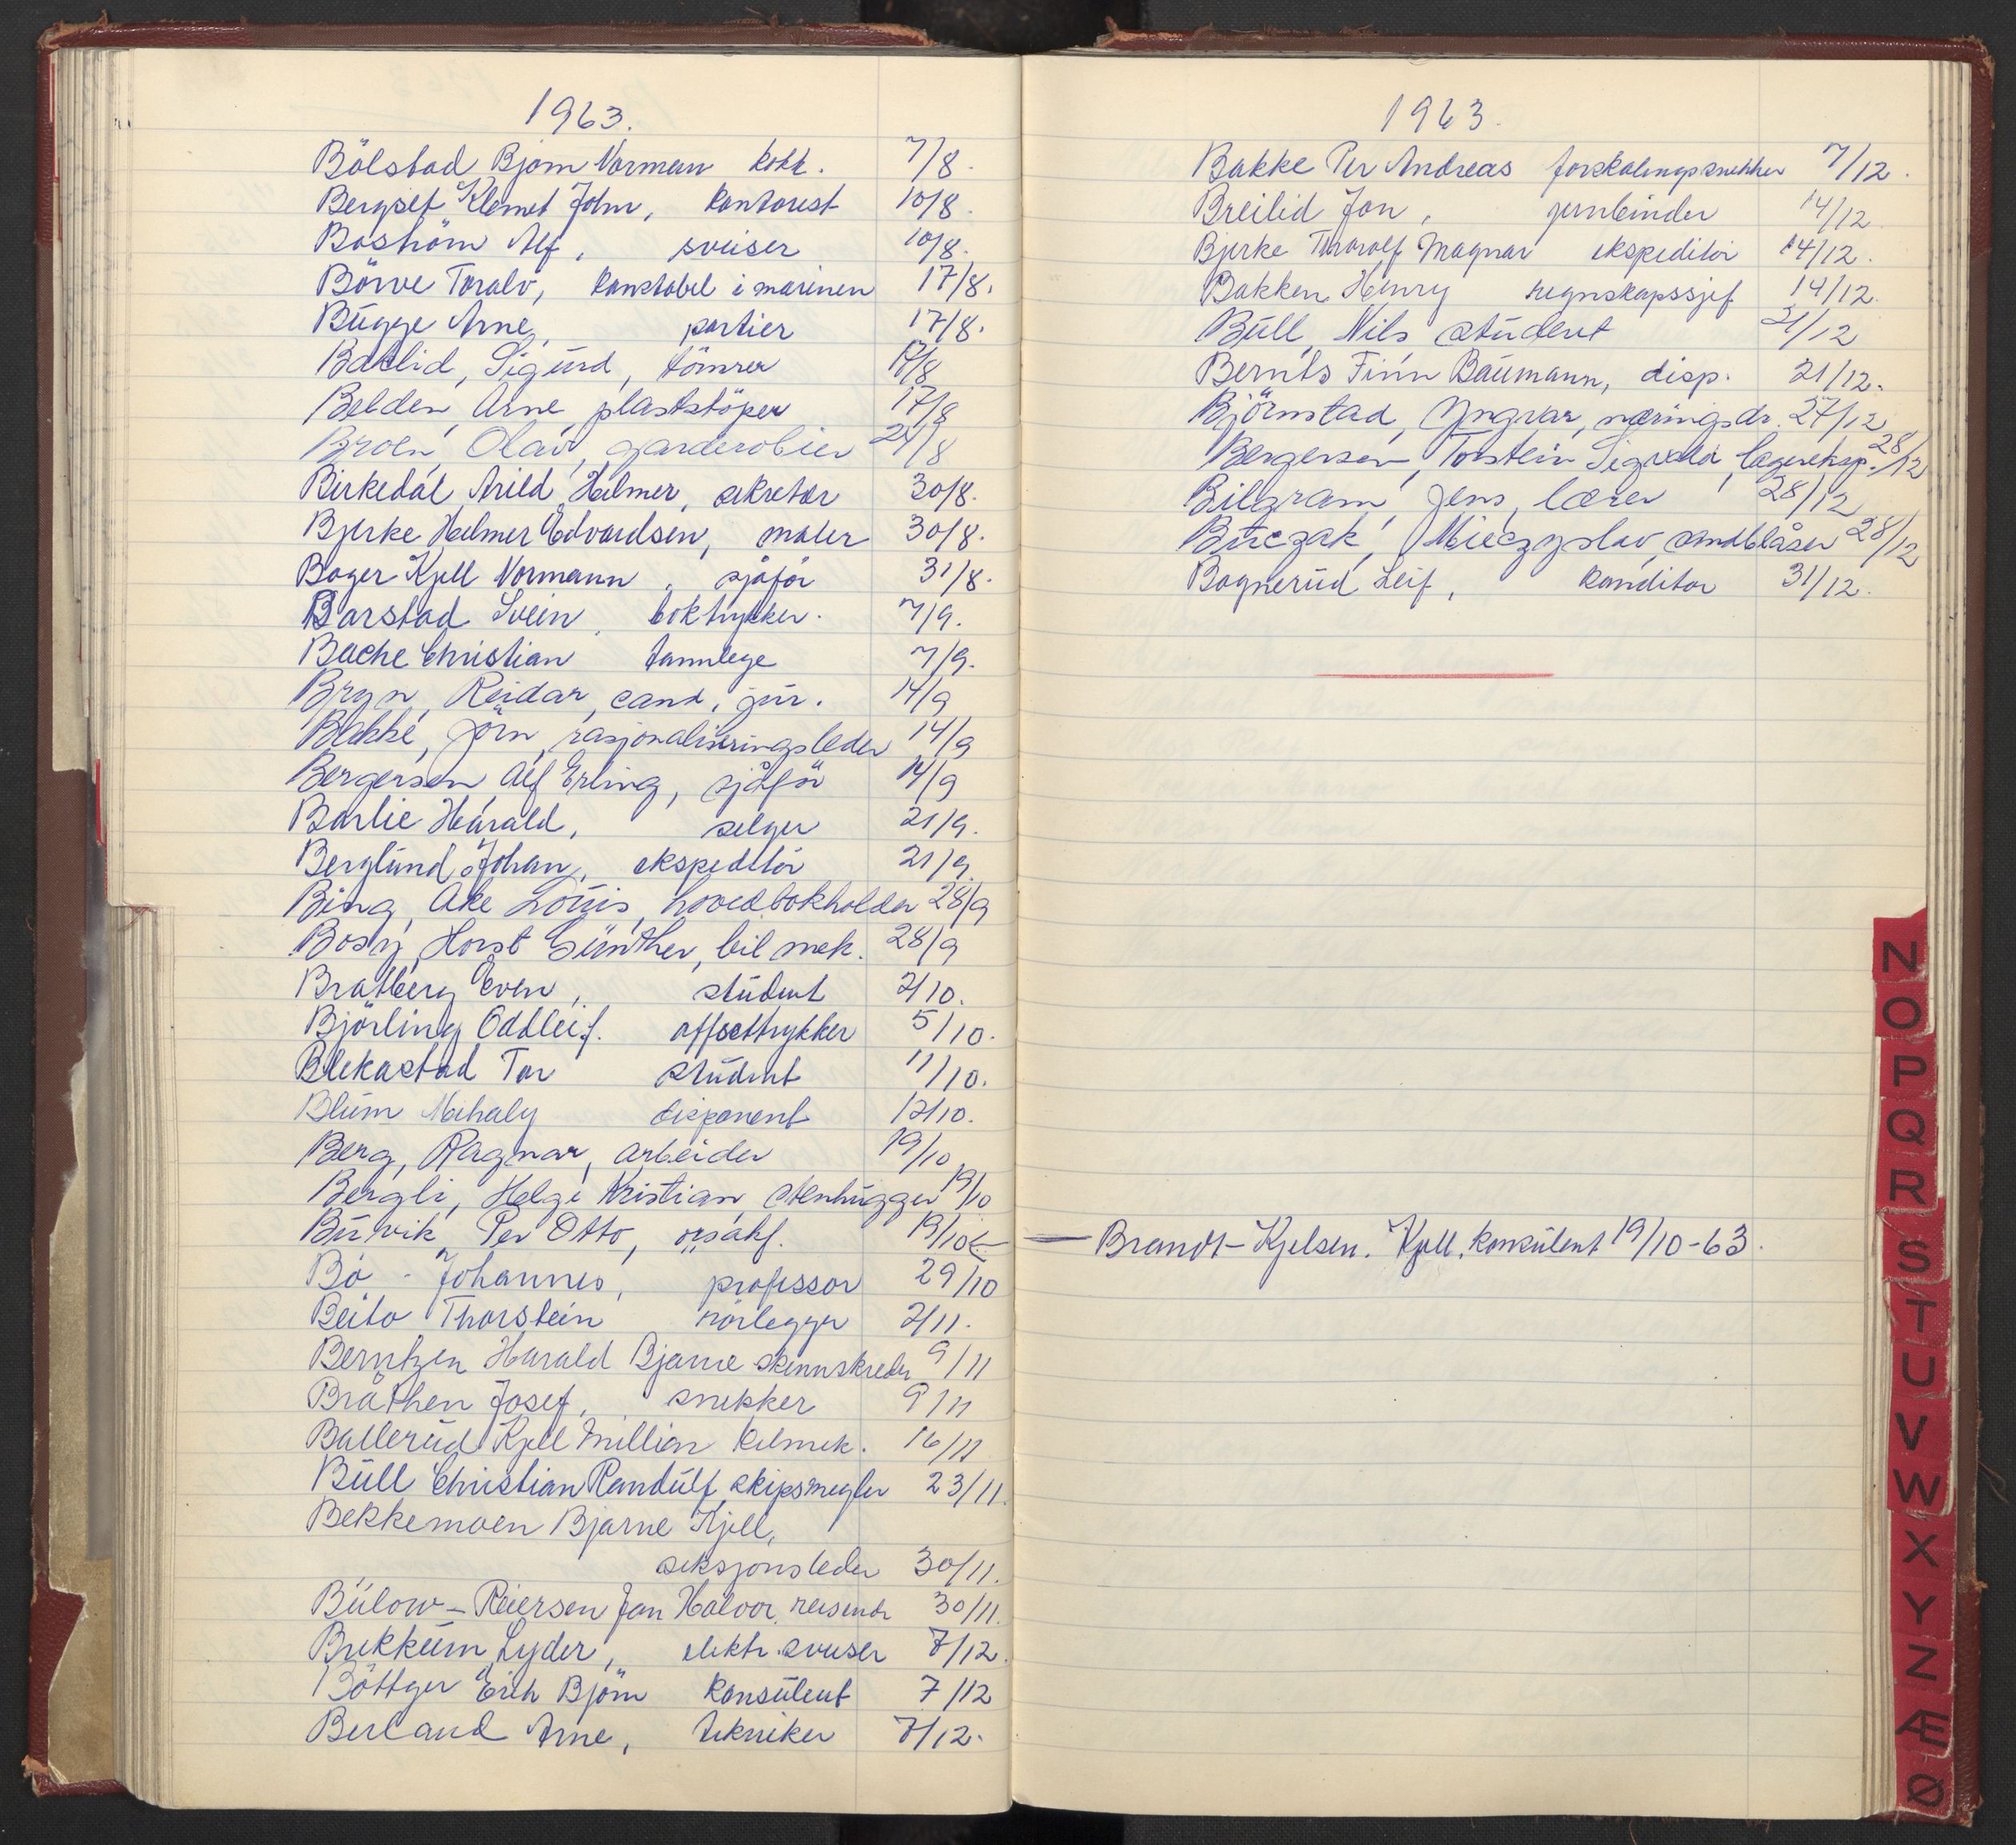 1963.
Bölstad Bjørn Norman kokk. 7/8.
Bergset Klemet John, kontorist 10/8.
Boström Alf, sveiser 10/8.
Börve Toralv, konstabel i marinen 17/8.
Bugge Arne, portier 17/8.
Baklid, Sigurd, tömrer 17/8
Belden, Arne, plaststöper 17/8
Broen, Olav, garderobier 24/8
Birkedal Arild Helmer, sekretær 30/8.
Bjerke Helmer Edvardsen, maler 30/8.
Boger Kjell Normann, sjåför 31/8.
Barstad Svein, boktrykker. 7/9.
Bache Christian tannlege 7/9.
Bryn, Reidar, cand. jur. 14/9
Bakke, Jörn, rasjonaliseringsleder 14/9
Bergersen, Alf Erling, sjåför 14/9
Barlie Harald, selger 21/9.
Berglund Johan, ekspeditör 21/9.
Bing, Åke Louis, hovedbokholder 28/9
Bosy, Horst Günther, bil mek. 28/9
Bratberg Even, student 2/10.
Björling Oddleif. offsettrykker 5/10.
Blekastad Tor student 11/10.
Blum Mihaly disponent 12/10.
Berg, Ragnar, arbeider 19/10
Bergli, Helge Kristian, stenhugger 19/10
Burvik, Per Otto, o.r.sakf. 19/10
Bö Johannes, professor 29/10
Beito Thorstein rörlegger 2/11.
Berntzen Harald Bjarne skinnskredr 9/11
Bråthen Josef, snekker 9/11
Ballerud Kjell Millian bilmek. 16/11
Bull Christian Randulf skipsmegler 23/11.
Bekkemoen Bjarne Kjell,
seksjonsleder 30/11.
Bülow-Reiersen Jan Halvor, reisende 30/11.
Brekkum Lyder, elektr. sveiser 7/12.
Böttger Erik Bjørn konsulent 7/12
Berland Arne, tekniker 7/12.
1963.
Bakke Per Andreas forskalingssnekker 7/12.
Breilid Jon, jernbinder 14/12
Bjerke Thorolf Magnar ekspeditör 14/12.
Bakken Henry regnskapssjef 14/12.
Bull, Nils student 21/12
Bernts Finn Baumann, disp. 21/12.
Björnstad, Yngvar, næringsdr. 27/12
Bergersen, Torstein Sigvald, lagereksp. 28/12
Bilgram, Jens, lærer 28/12
Burczak, Mieczyslav, sandblåser 28/12
Bognerud Leif, konditor 31/12.
Brandt-Kjelsen. Kjell, konsulent 19/10-63.
N
O
P
Q
R
S
T
U
V
W
X
Y
Z
Æ
Ø